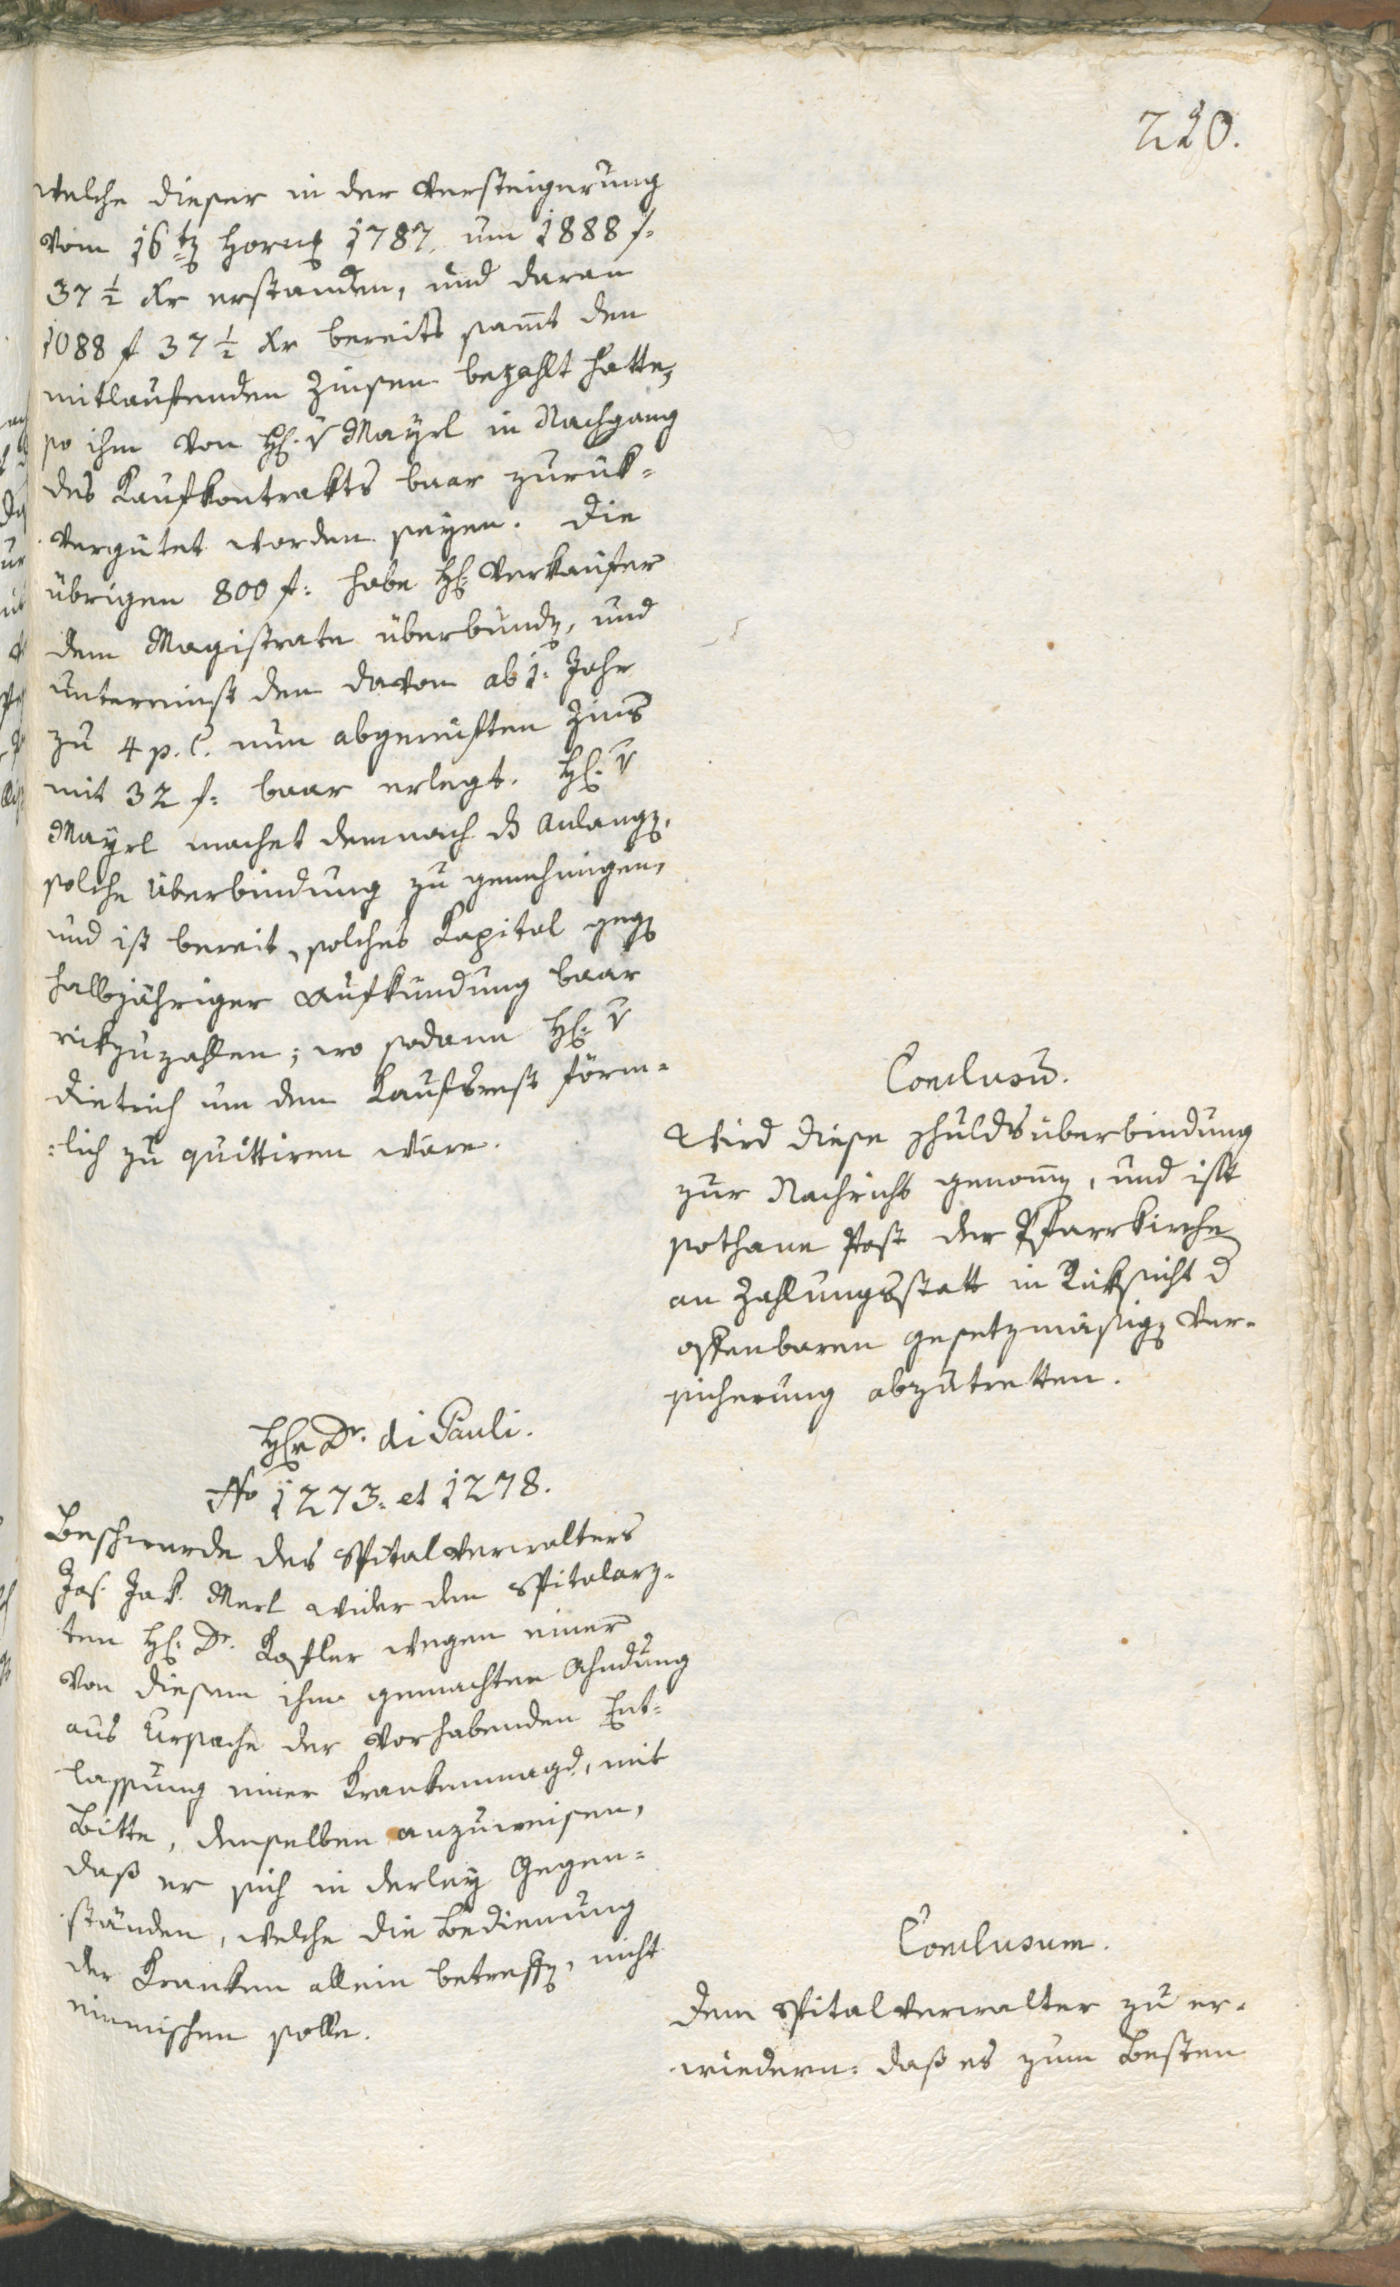 220.
welche dieser in der Versteigerung
vom 16tȩ Hornȩ 1787. um 1888 f:
37 ½ Xr erstanden, und daran
1088 f 37 ½ Xr bereits sam̅t den
mitlaufenden Zinsen bezahlt hatte,
so ihm von H: v Mayrl in Nachgang
des Kaufkontrakts baar zurük=
vergütet worden seyen. Die
übrigen 800 f: habe H: Verkaufer
dem Magistrate überbundȩ, und
unterninst den davon ab 1: Jahr
zu 4 p. C. nun abgereiften Zins
mit 32 f: baar erlegt. H: v
Mayrl machet demnach d Anlangȩ,
solche Überbindung zu genehmigen,
und ist bereit, solches Kapital gegȩ
halbjähriger Aufkündung baar
rükzuzahlen; wo sodann H: v
Dietrich um den Kaufsrest förm=
=lich zu quittiren wäre.
Conclusu̅.
Wird diese Schuldsüberbindung
zur Nachricht genom̅ȩ, und ist
sothane Post der Pfarrkirche
an Zahlungsstatt in Rüksicht d
offenbaren gesetzmäßigȩ Ver=
sicherung abzutretten.
Hr Dr. di Pauli.
No 1273. et 1278.
Beschwerde des Spitalverwalters
Jos. Jak. Merl wider den Spitalarz=
ten H: Dr. Kofler wegen einer
von diesem ihm gemachten Ahndung
aus Ursache der vorhabenden Ent=
lassung einer Krankenmagd, mit
Bitte, denselben anzuweisen,
daß er sich in derley Gegen=
ständen, welche die Bedienung
der Kranken allein betreffȩ, nicht
einmischen solle.
Conclusum.
Dem Spitalverwalter zu er=
wiedern: daß es zum Besten